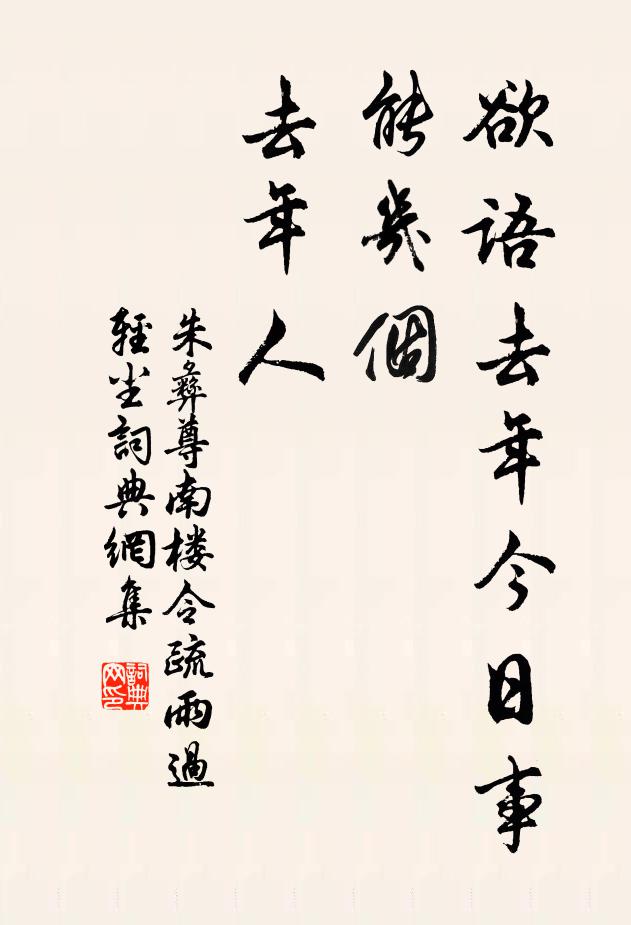 欲語去年今日事
能幾個
去年人
朱彝尊南楼令疏雨過
輕尘詞典網集
詞典
网印